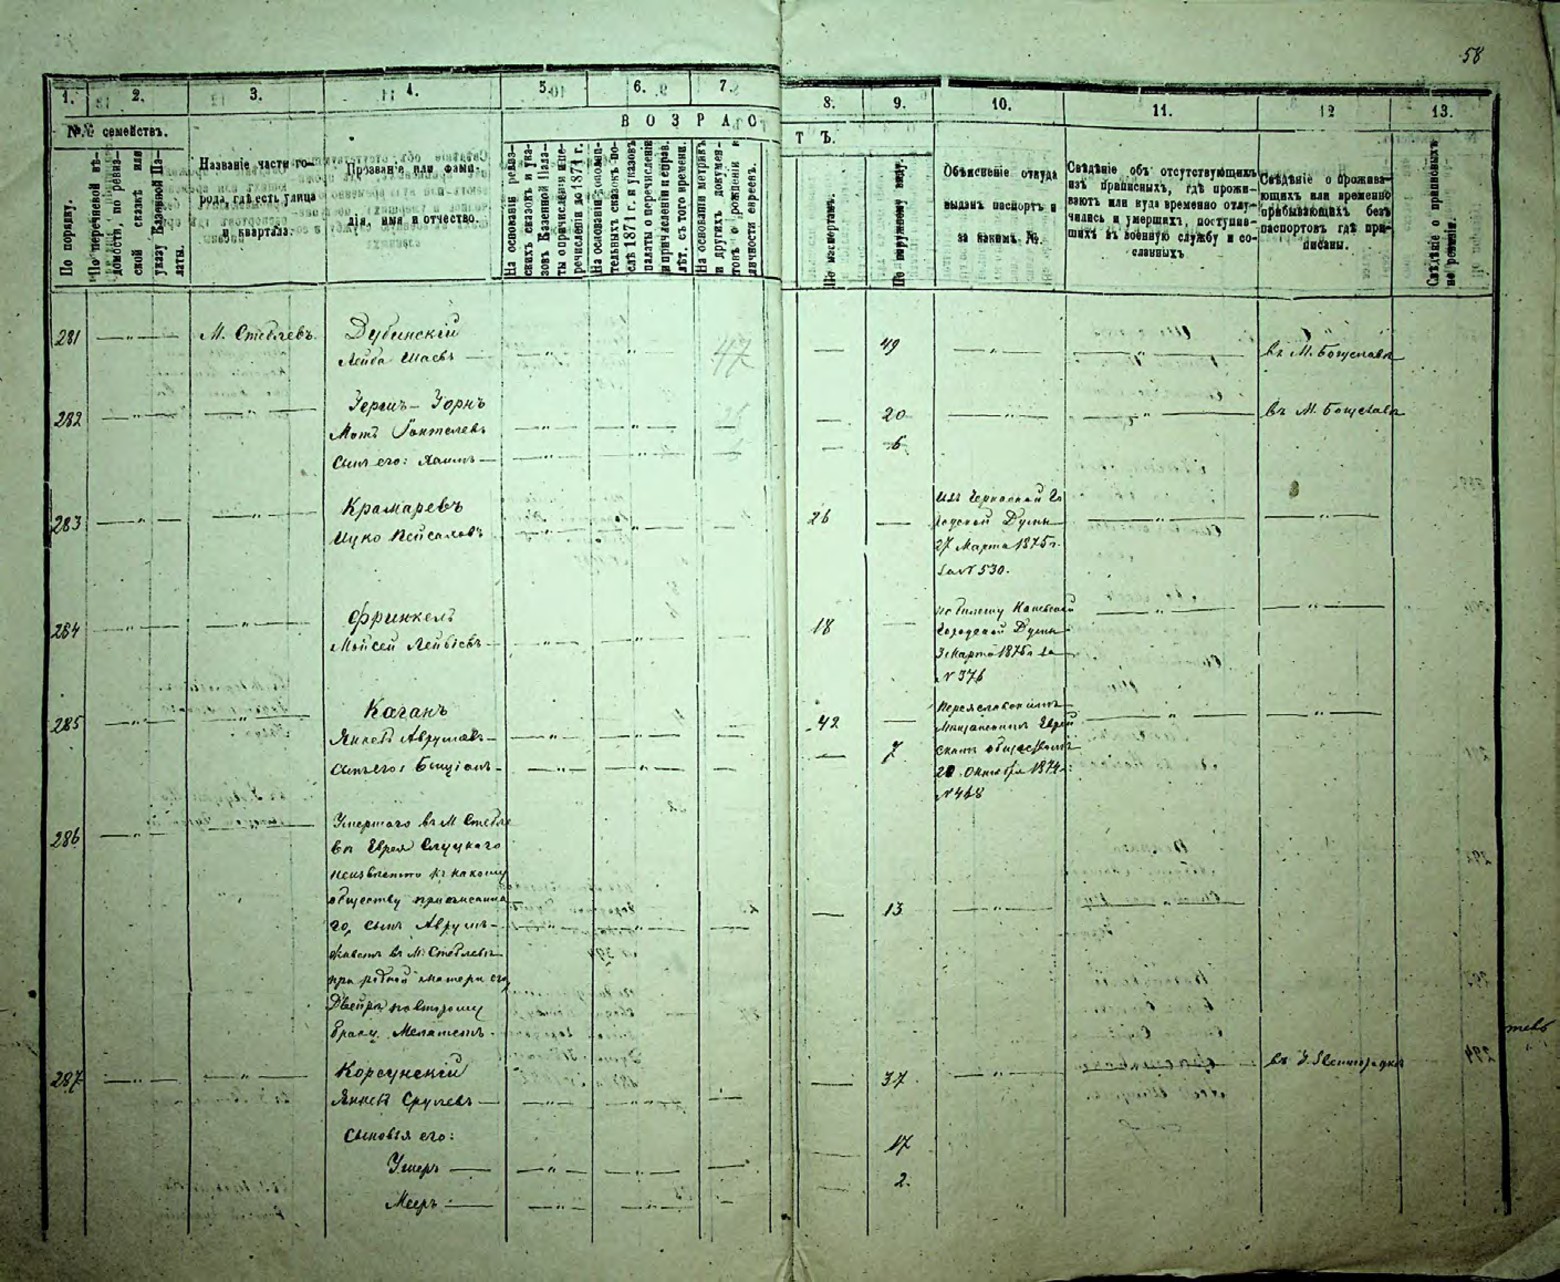 58
1. 2. 3. 4. 5. 6. 7. 8. 9. 10. 11. 12 13.
№№ семействъ.
В О З Р А С Т Ъ.
По порядку.
По перечневой вѣдомости, по ревизской сказкѣ или указу Казенной Палаты.
Названіе части города, гдѣ есть улица и квартала.
Прозваніе или фамилія, имя и отчество.
На основаніи ревизскихъ сказокъ и указовъ Казенной Палаты о причисленіи и перечисленіи до 1871 г.
На основаніи дополнительныхъ сказокъ послѣ 1871 г. и указовъ палаты о перечисленіи и причисленіи и справ. лѣт. съ того времени.
На основаніи метрикъ и другихъ документовъ о рожденіи и личности евреевъ.
По паспортамъ.
По наружному виду.
Объясненіе откуда выданъ паспортъ и за какимъ №.
Свѣдѣніе объ отсутствующихъ изъ приписныхъ, гдѣ проживаютъ или куда временно отлучились и умершихъ, поступившихъ въ военную службу и сосланныхъ
Свѣдѣніе о проживающихъ или временно прибывающихъ безъ паспортовъ гдѣ приписаны.
Свѣдѣніе о приписныхъ по ревизіи.
281 М. Стеблевъ. Дубинскій
Лейба Шаевъ 47 49 въ М. Богуславѣ
282 Зергиъ-Зорнъ 20 въ М. Богуславѣ
Мотъ
сынъ его: Хаимъ 6
283 Крамаревъ 26 Изъ Черкаской Го
Ицко Пейсаховъ родской Думы
27 Марта 1875 г.
За № 530.
284 Фринкель 18 по билету Каневской
Мойсей Лейбіевъ Городской Думы
3 Марта 1875 г. за
№ 376
285 Каганъ 42 Переяславскимъ
Янкель Аврумовъ Мѣщанскимъ Еврей
сынъ его: Бенціонъ 7 скимъ обществомъ
20 Октября 1874 г.
№ 468
286 Умершаго въ М. Стебле
вѣ Еврея Слуцкаго
неизвѣстно къ какому
обществу приписанна
го, сынъ Аврумъ 13
живетъ въ М. Стеблевѣ
при родной матери его
Двейрѣ, по второму
браку
287 Корсунскій 37 въ г. Звенигородкѣ
Янкель Срулевъ
Сыновья его:
Ушеръ 17
Мееръ 2.